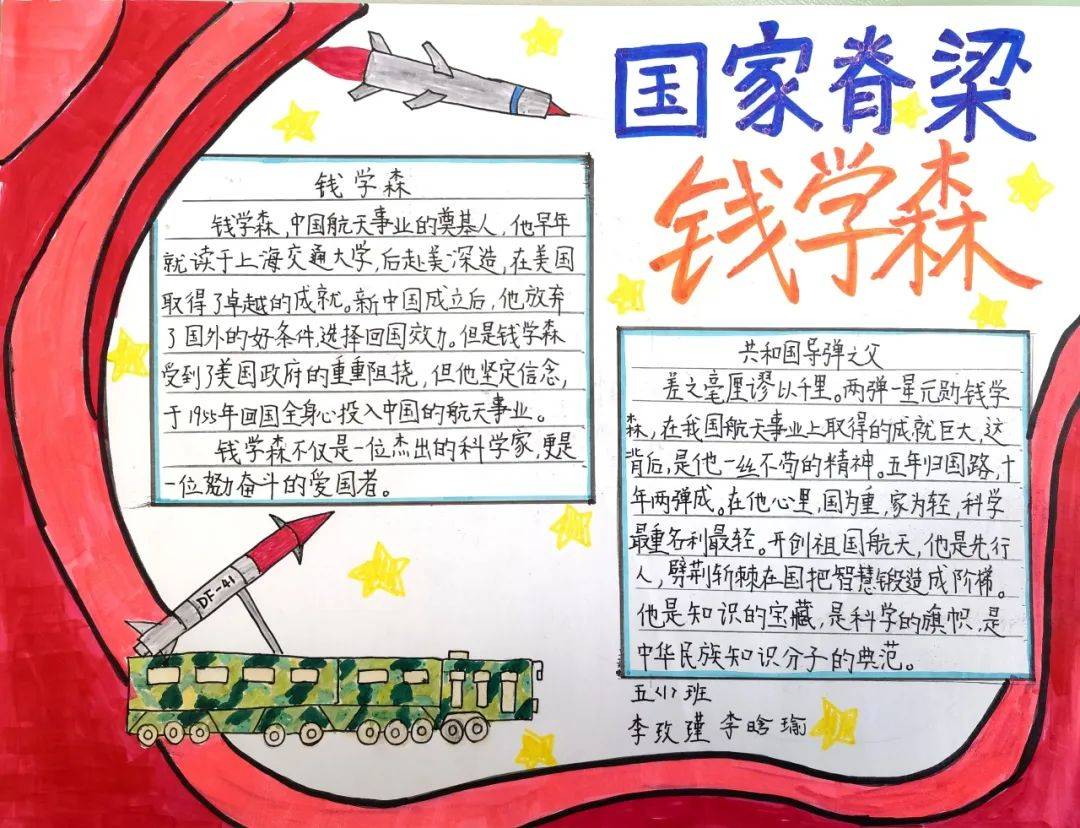 国家脊梁
钱学森
钱学森
钱学森,中国航天事业的奠基人,他早年
就读于上海交通大学,后赴美深造,在美国
取得了卓越的成就。新中国成立后,他放弃
了国外的好条件,选择回国效力。但是钱学森
受到了美国政府的重重阻挠,但他坚定信念,
于1955年回国全身心投入中国的航天事业。
钱学森不仅是一位杰出的科学家,更是
一位努力奋斗的爱国者。
DF-41
共和国导弹之父
差之毫厘谬以千里。两弹一星元勋钱学
森,在我国航天事业上取得的成就巨大,这
背后,是他一丝不苟的精神。五年归国路,十
年两弹成。在他心里,国为重,家为轻,科学
最重名利最轻。开创祖国航天,他是先行
人,劈荆斩棘在国把智慧锻造成阶梯。
他是知识的宝藏,是科学的旗帜,是
中华民族知识分子的典范。
五(1)班
李玫瑾 李晗瑜